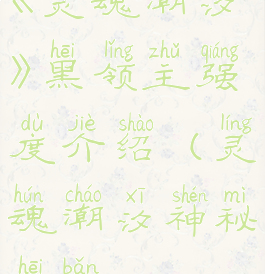 《灵魂潮汐
hēi lǐng zhǔ qiáng
》黑领主强
dù jiè shào líng
度介绍（灵
hún cháo xī shén mì
魂潮汐神秘
hēi bǎn